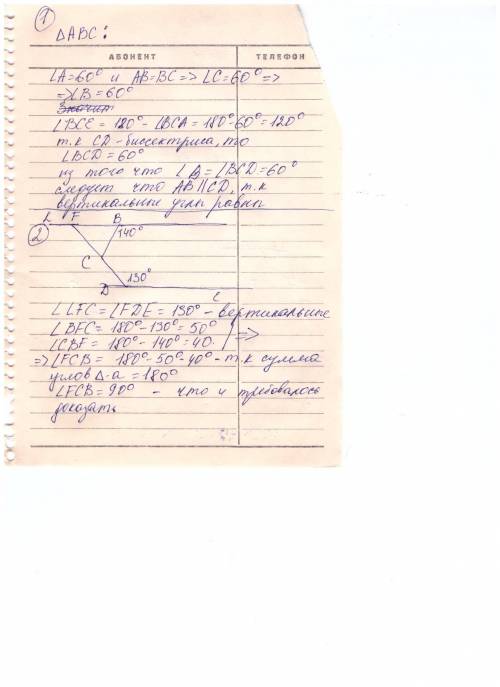 1
ΔABC:
АБОНЕНТ ТЕЛЕФОН
∠A=60° и AB=BC => ∠C=60° =>
=> ∠B=60°
Значит
∠BCE = 120° - ∠BCA = 180°-60°=120°
т.к CD - биссектриса, то
∠BCD = 60°
из того что ∠B=∠BCD=60°
следует что AB||CD, т.к
вертикальные углы равны
L F B
2 140°
C
D 130° E
∠LFC = ∠FDE = 130° - вертикальные
∠BFC = 180°-130° = 50°
∠CBF = 180°-140° = 40. =>
=> ∠FCB = 180°-50°-40° - т.к сумма
углов Δ-а = 180°
∠FCB = 90° - что и требовалось
доказать